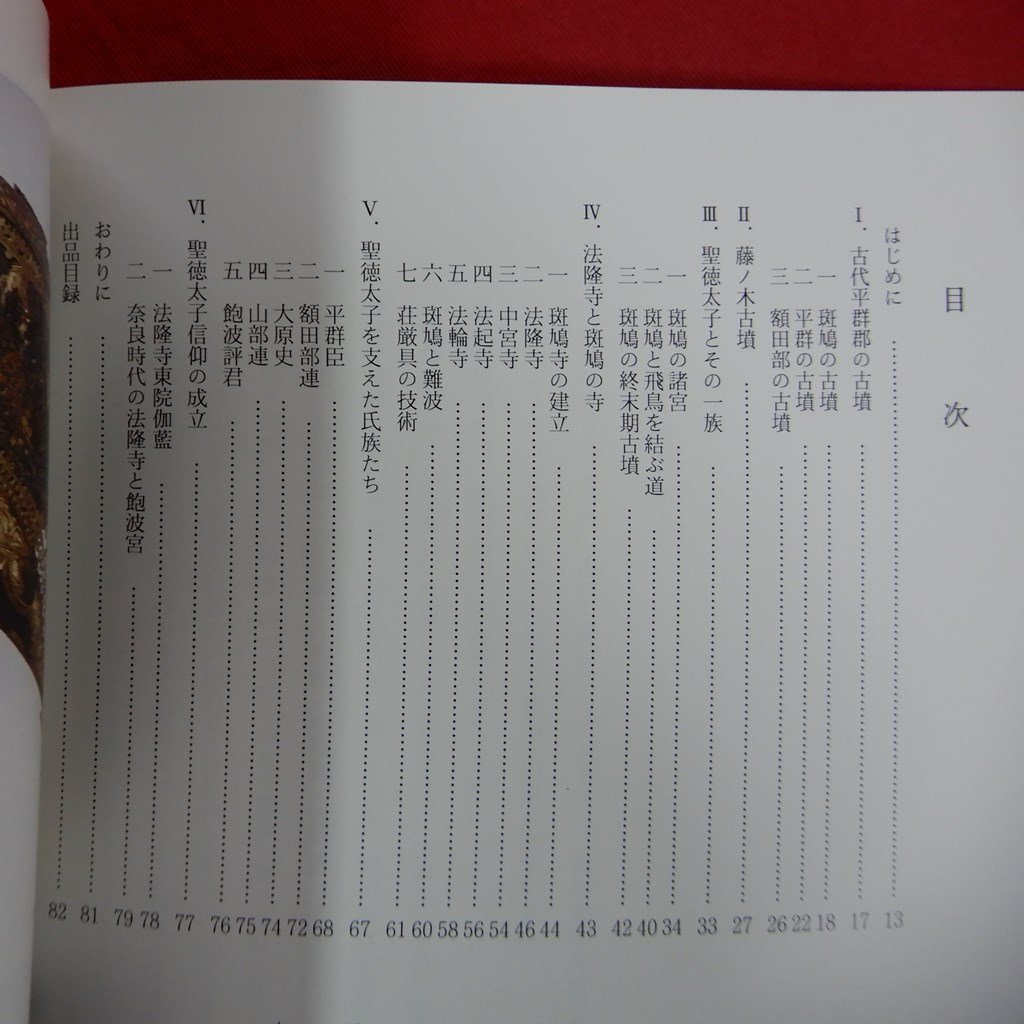 目次
はじめに 13
Ⅰ. 古代平群郡の古墳 17
一 斑鳩の古墳 18
二 平群の古墳 22
三 額田部の古墳 26
Ⅱ. 藤ノ木古墳 27
Ⅲ. 聖徳太子とその一族 33
一 斑鳩の諸宮 34
二 斑鳩と飛鳥を結ぶ道 40
三 斑鳩の終末期古墳 42
Ⅳ. 法隆寺と斑鳩の寺 43
一 斑鳩寺の建立 44
二 法隆寺 46
三 中宮寺 54
四 法起寺 56
五 法輪寺 58
六 斑鳩と難波 60
七 荘厳具の技術 61
Ⅴ. 聖徳太子を支えた氏族たち 67
一 平群臣 68
二 額田部連 72
三 大原史 74
四 山部連 75
五 飽波評君 76
Ⅵ. 聖徳太子信仰の成立 77
一 法隆寺東院伽藍 78
二 奈良時代の法隆寺と飽波宮 79
おわりに 81
出品目録 82